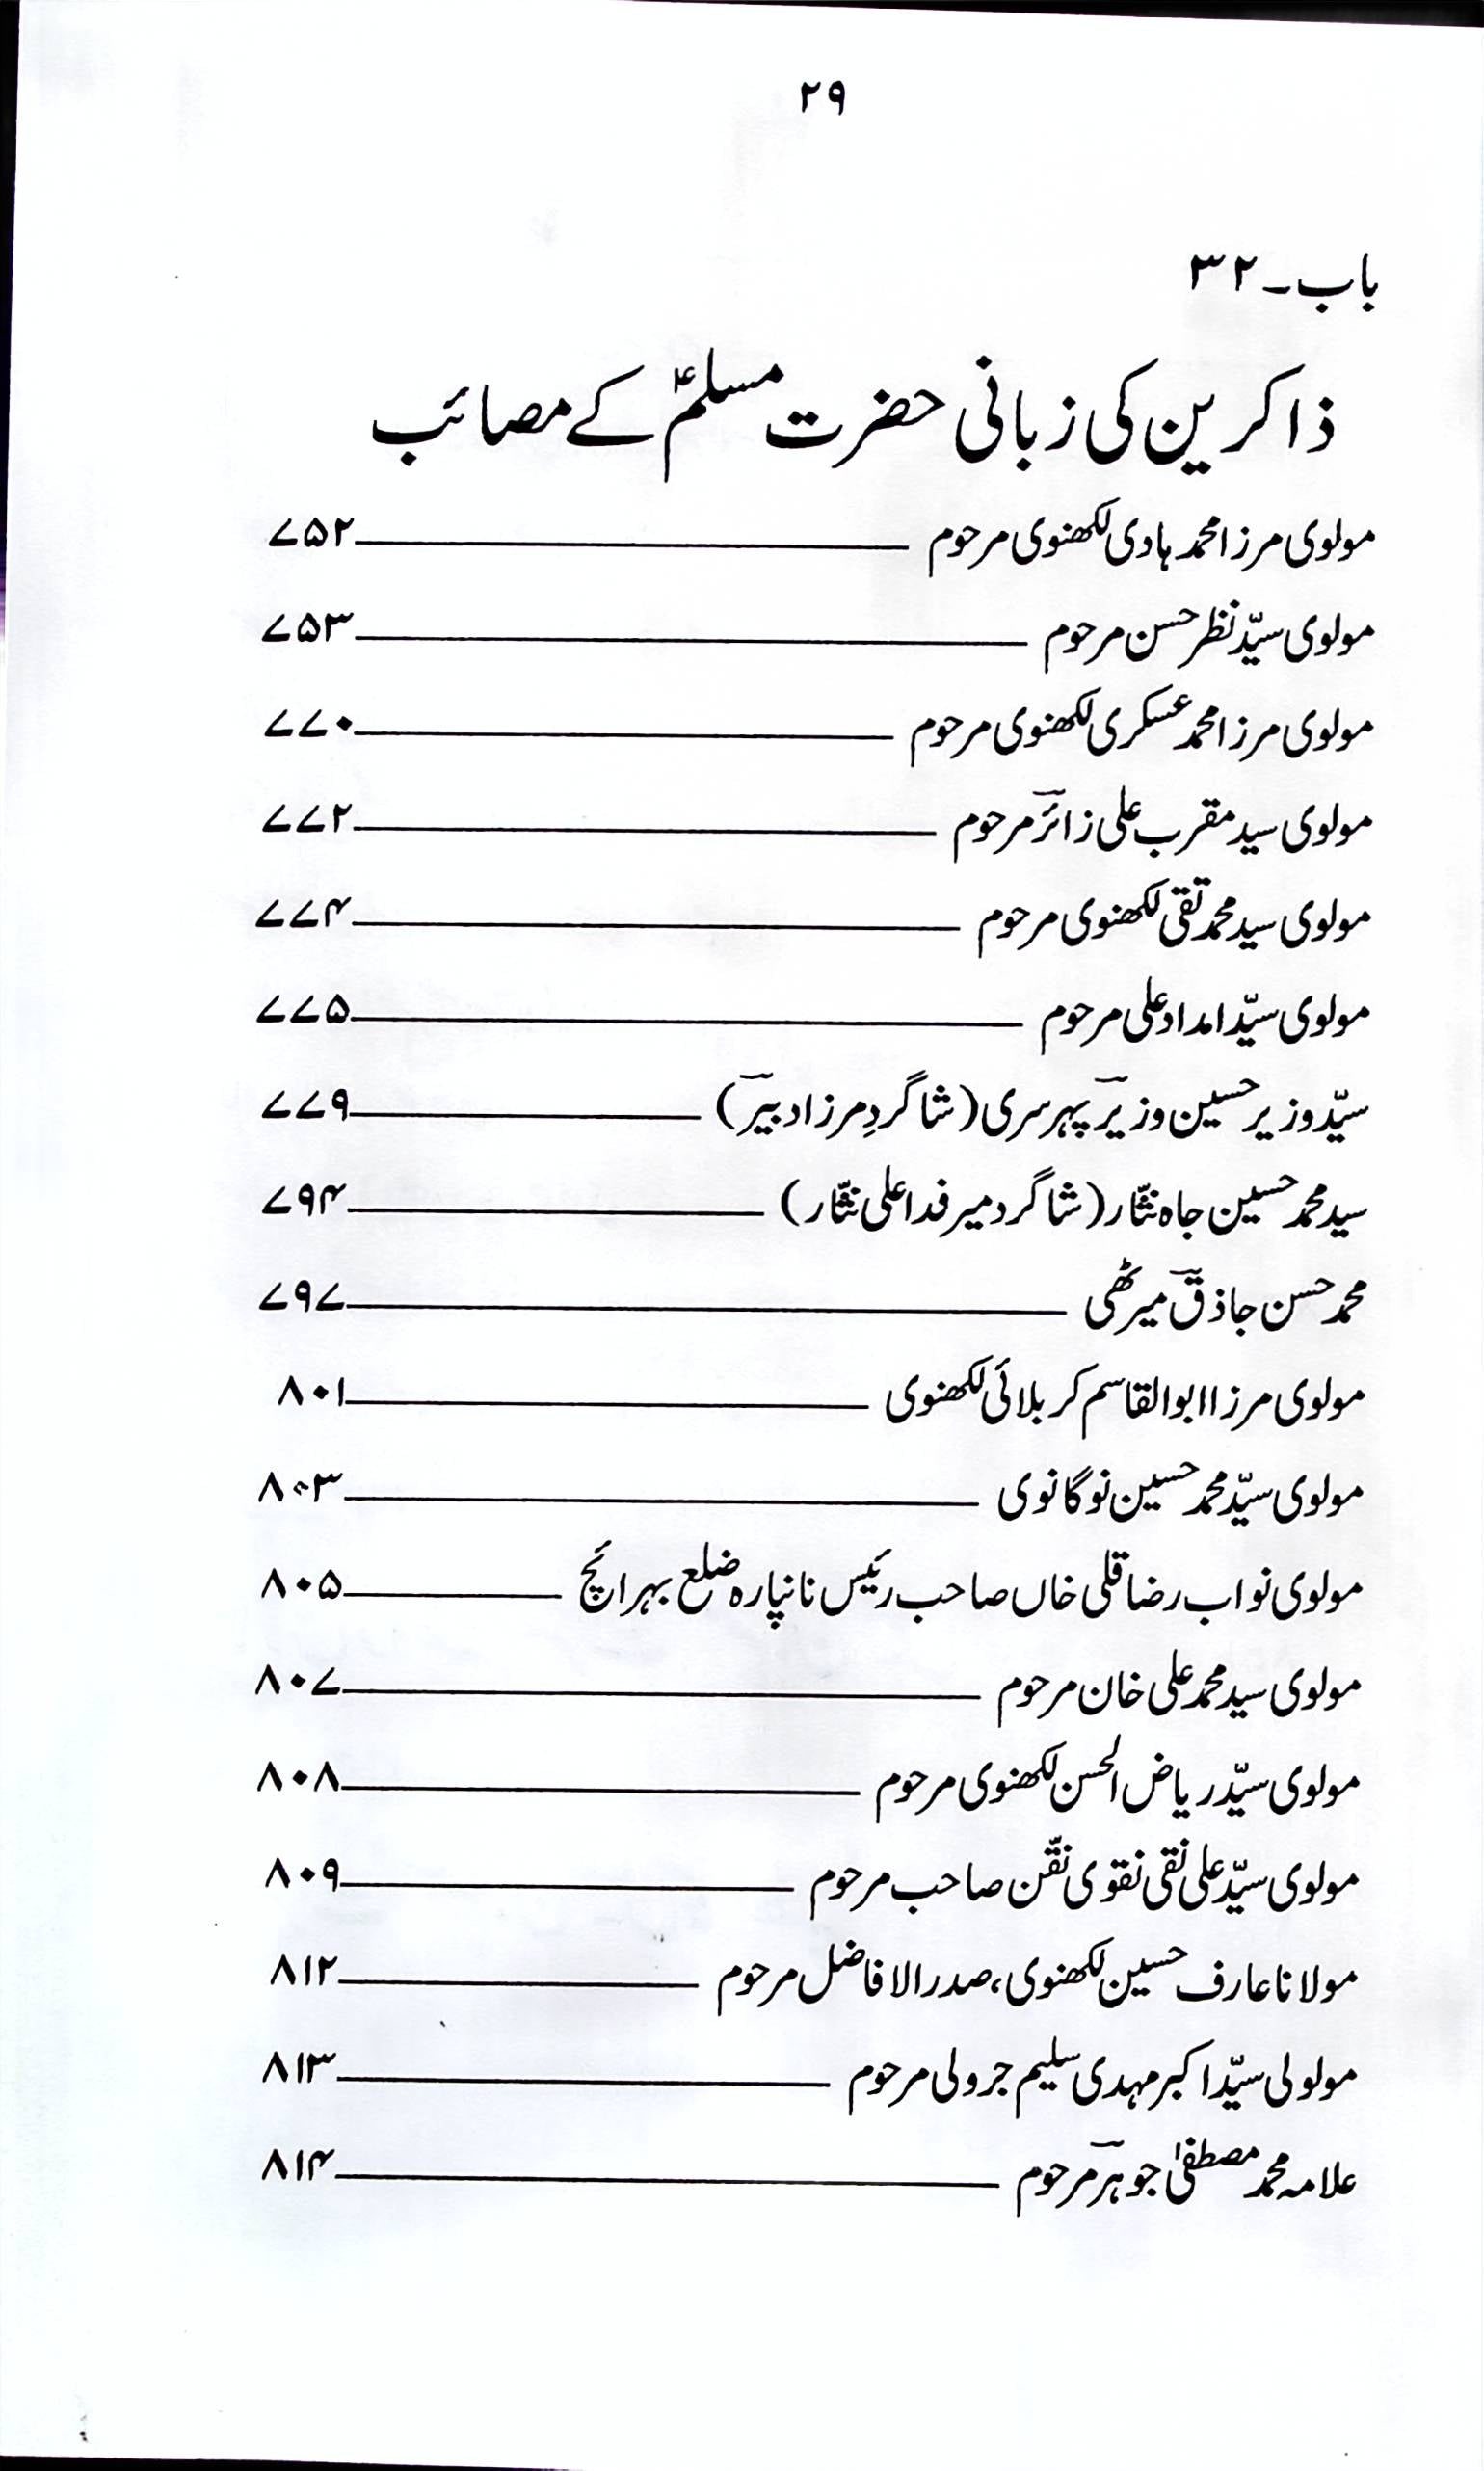 ۲۹
باب۔۳۲
ذاکرین کی زبانی حضرت مسلمؑ کے مصائب
مولوی مرزا محمد ہادی لکھنوی مرحوم ــــــ ۷۵۲
مولوی سیّد نظر حسن مرحوم ــــــ ۷۵۳
مولوی مرزا محمد عسکری لکھنوی مرحوم ــــــ ۷۷۰
مولوی سید مقرب علی زائرؔ مرحوم ــــــ ۷۷۲
مولوی سید محمد تقی لکھنوی مرحوم ــــــ ۷۷۴
مولوی سیّد امداد علی مرحوم ــــــ ۷۷۵
سیّد وزیر حسین وزیرؔ پہرسری (شاگردِ مرزا دبیرؔ) ــــــ ۷۷۹
سید محمد حسین جاہ نثّار (شاگرد میر فدا علی نثّار) ــــــ ۷۹۴
محمد حسن جاذقؔ میرٹھی ــــــ ۷۹۷
مولوی مرزا ابوالقاسم کربلائی لکھنوی ــــــ ۸۰۱
مولوی سیّد محمد حسین نوگانوی ــــــ ۸۰۳
مولوی نواب رضا قلی خاں صاحب رئیس نانپارہ ضلع بہرائچ ــــــ ۸۰۵
مولوی سید محمد علی خان مرحوم ــــــ ۸۰۷
مولوی سیّد ریاض الحسن لکھنوی مرحوم ــــــ ۸۰۸
مولوی سیّد علی نقی نقوی نقّن صاحب مرحوم ــــــ ۸۰۹
مولانا عارف حسین لکھنوی، صدر الافاضل مرحوم ــــــ ۸۱۲
مولولی سیّد اکبر مہدی سلیم جرولی مرحوم ــــــ ۸۱۳
علامہ محمد مصطفیٰ جوہرؔ مرحوم ــــــ ۸۱۴